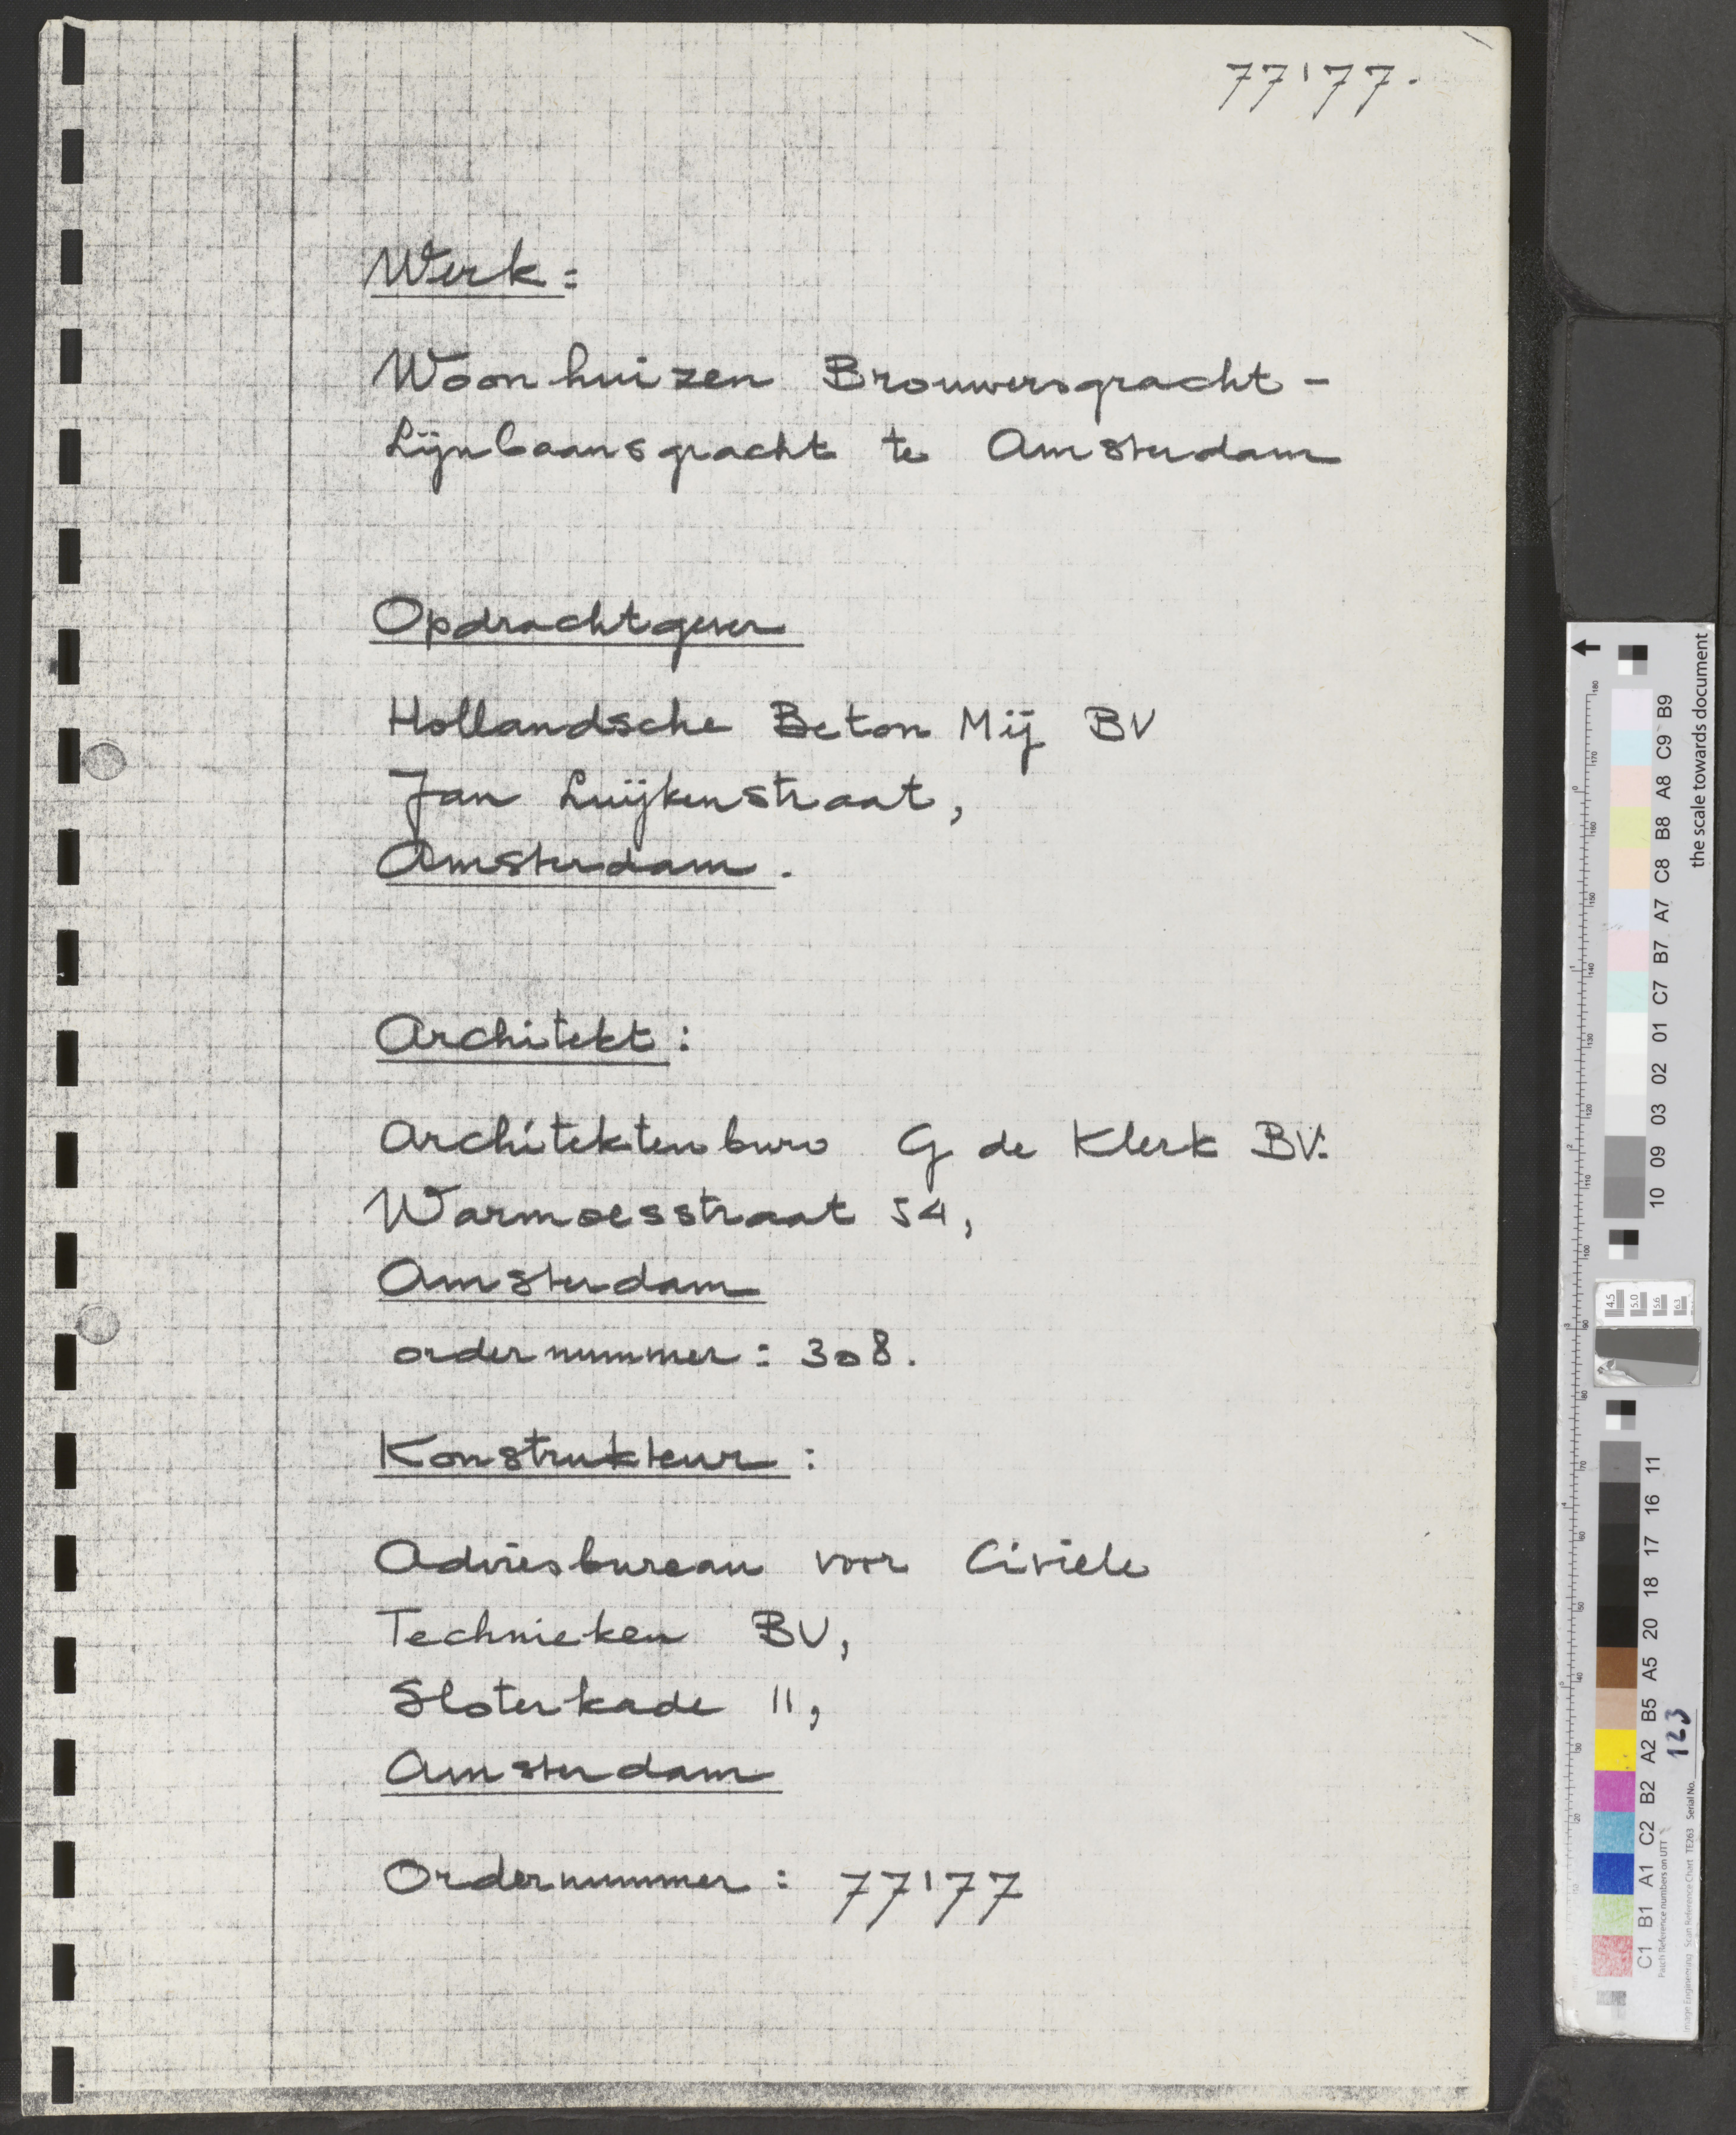 77'77.
Werk:
Woonhuizen Brouwersgracht -
Lijnbaansgracht te Amsterdam
Opdrachtgever
Hollandsche Beton Mij BV
Jan Luijkenstraat,
Amsterdam.
Architekt:
Architektenburo G de Klerk BV.
Warmoesstraat 54,
Amsterdam
ordernummer: 308.
Konstrukteur:
Adviesbureau voor Civiele
Technieken BV,
Sloterkade 11,
Amsterdam
Ordernummer: 77'77
the scale towards document
B9
C9
A8
B8
C8
A7
B7
C7
01
02
03
09
10
4.5
5.0
5.6
6.3
11
16
17
18
20
A5
B5
A2
B2
C2
A1
B1
C1
Patch Reference numbers on UTT
Image Engineering Scan Reference Chart TE263 Serial No. 123